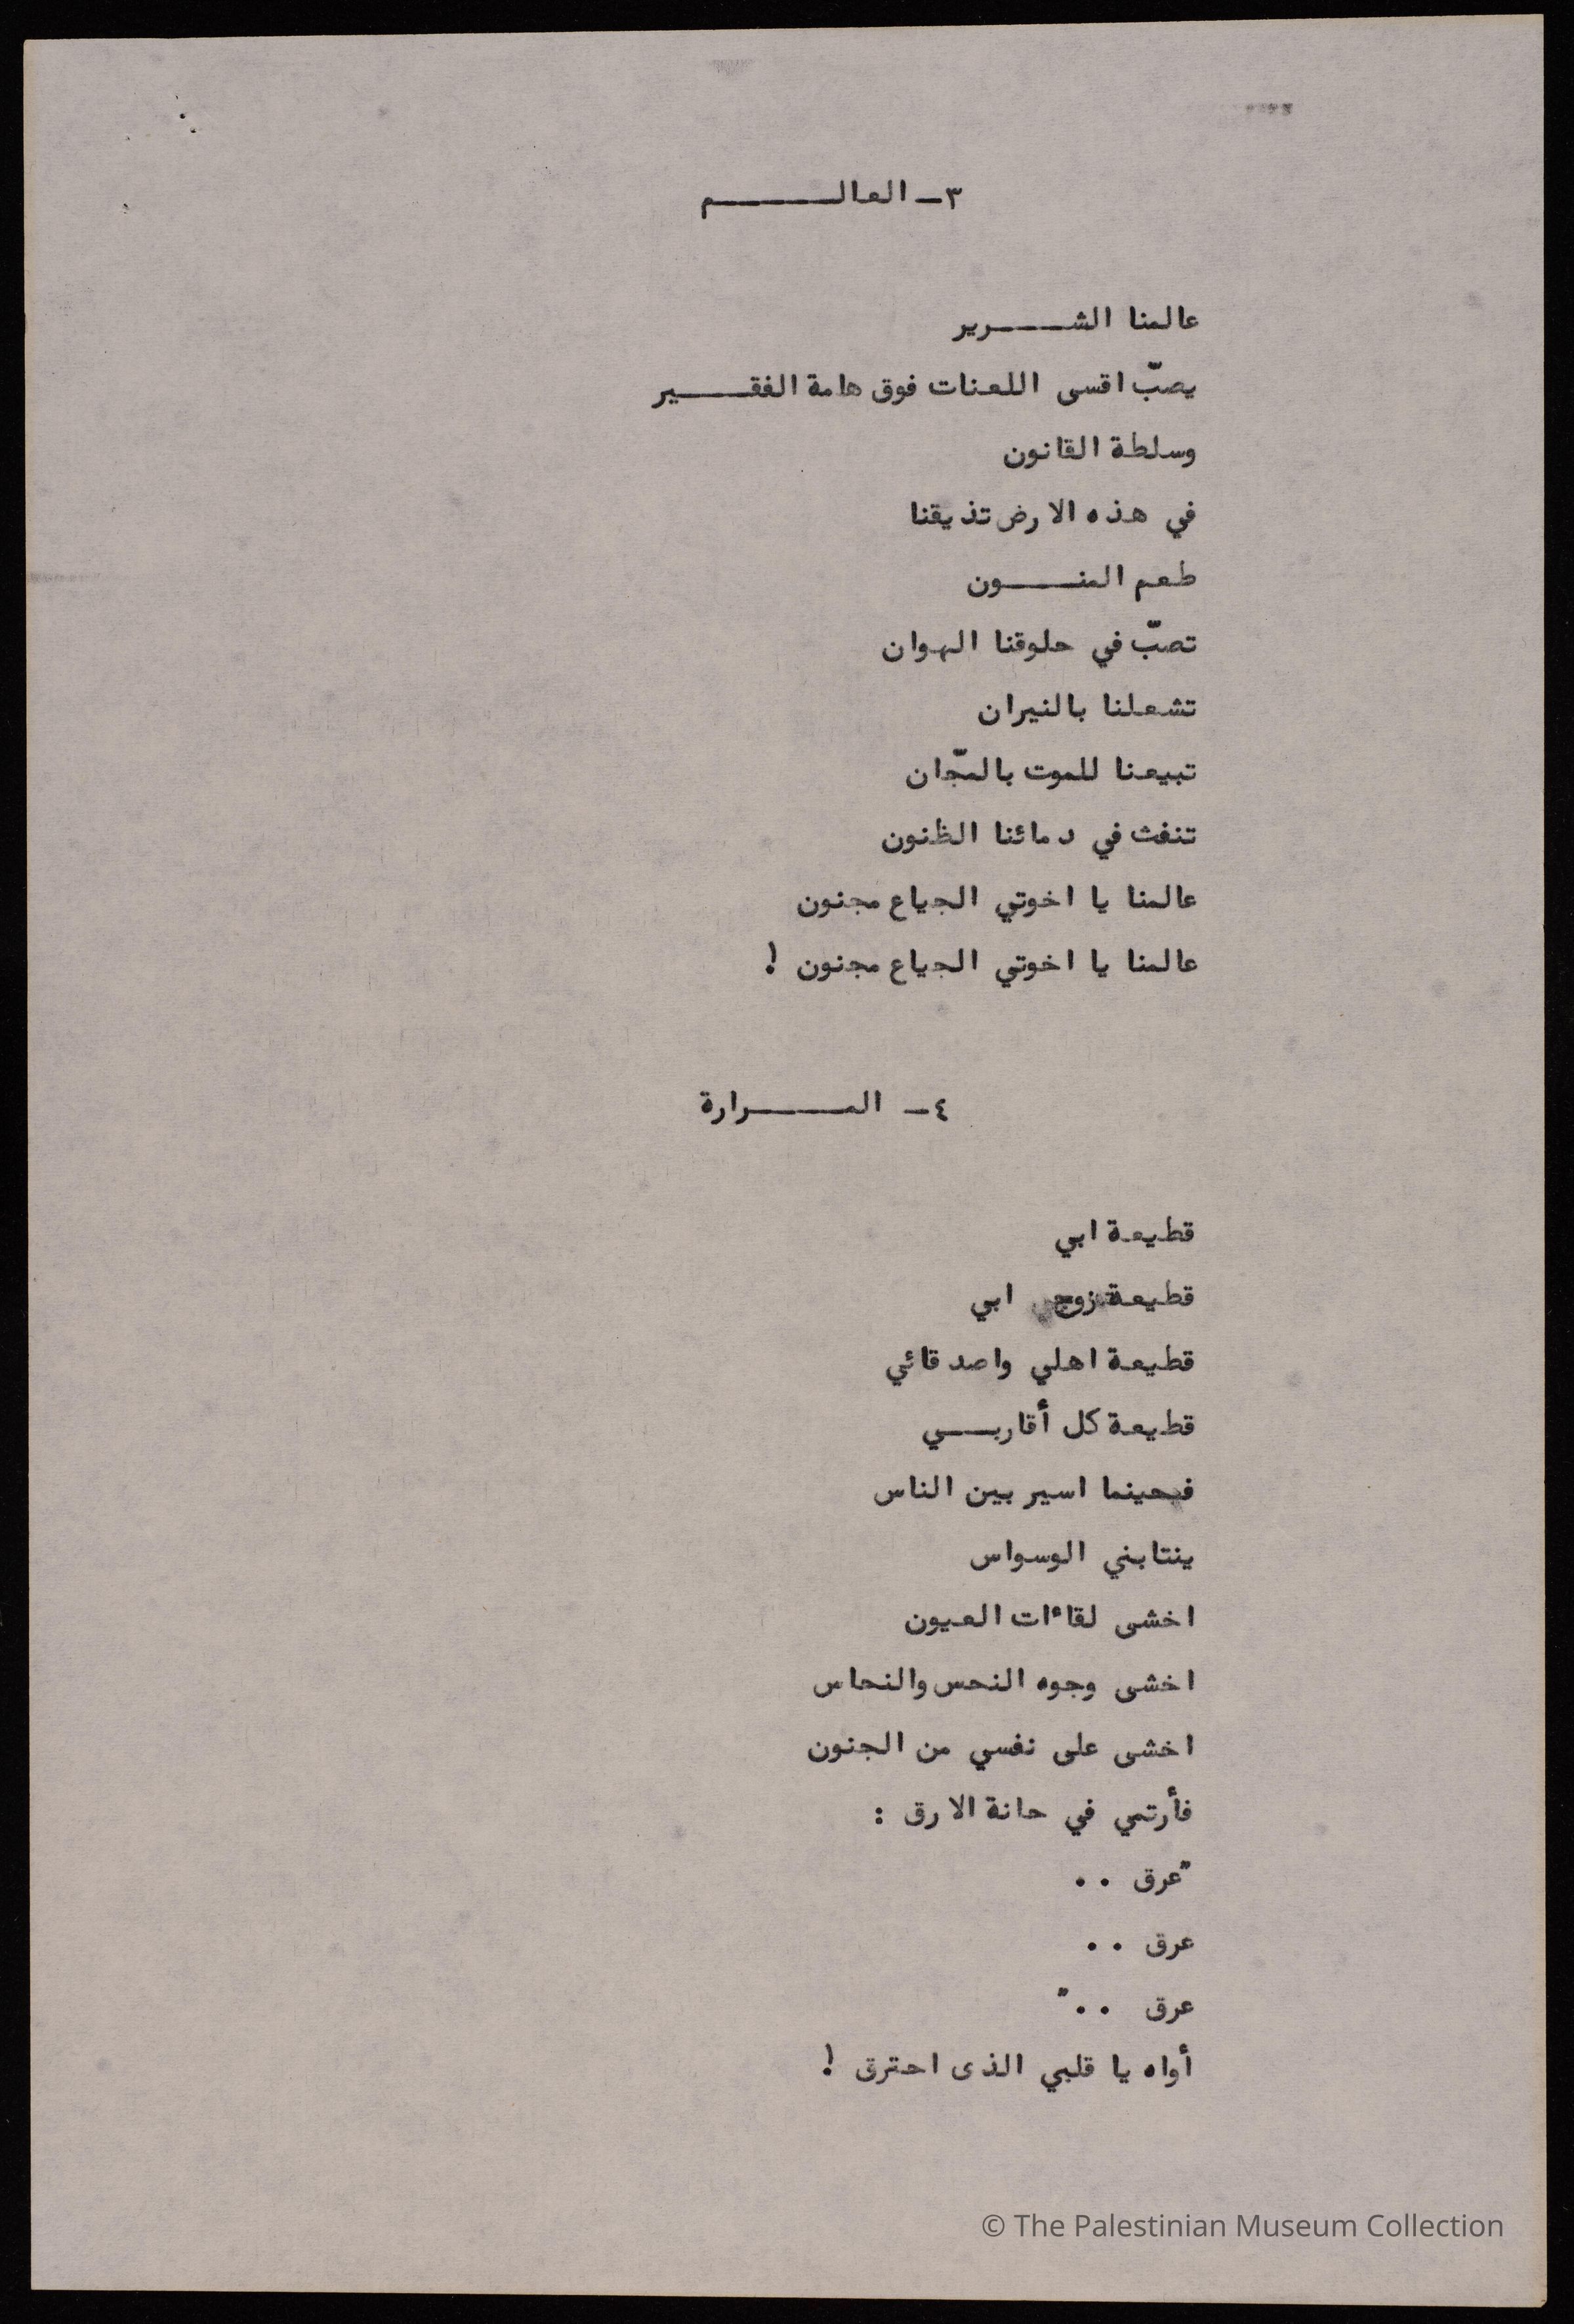 ٣ــ العالــــــم
عالمنا الشــــرير
يصبّ اقسى اللعنات فوق هامة الفقــــير
وسلطة القانون
في هذه الارض تذيقنا
طعم المنــــون
تصبّ في حلوقنا الهوان
تشعلنا بالنيران
تبيعنا للموت بالمجّان
تنفث في دمائنا الظنون
عالمنا يا اخوتي الجياع مجنون
عالمنا يا اخوتي الجياع مجنون !
٤ــ المــــــرارة
قطيعة ابي
قطيعة زوج ابي
قطيعة اهلي واصدقائي
قطيعة كل أقاربــــي
فحينما اسير بين الناس
ينتابني الوسواس
اخشى لقاءات العيون
اخشى وجوه النحس والنحاس
اخشى على نفسي من الجنون
فأرتمي في حانة الارق :
"عرق ..
عرق ..
عرق .."
أواه يا قلبي الذى احترق !
© The Palestinian Museum Collection